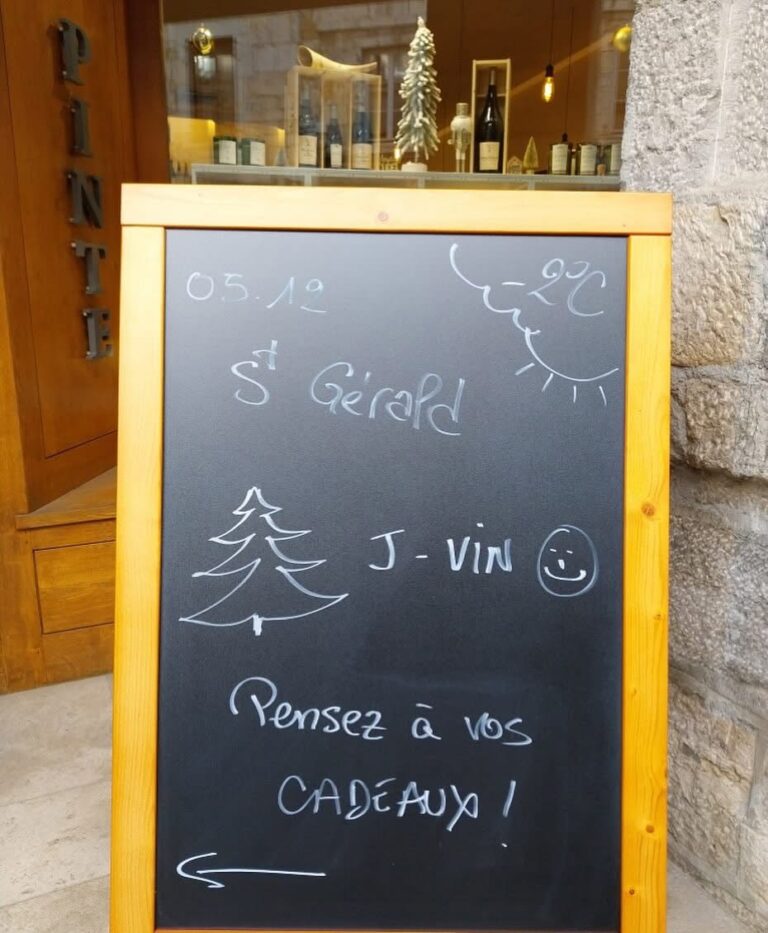 PINTE
05.12
-2°C
St Gérald
J-VIN
Pensez à vos
CADEAUX !